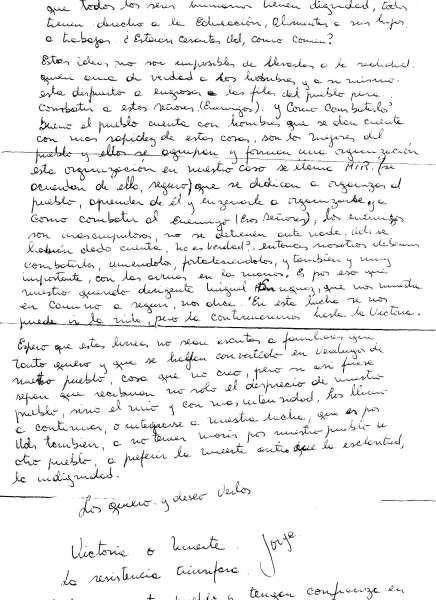 que todos los seres humanos tienen dignidad, todos
tienen derecho a la Educación, Alimentar a sus hijos
a trabajar ¿Estaran cesantes Ud, como comen?
Estas ideas no son imposibles de llevarlas a la realidad.
quien ama de verdad a los hombres y a si mismo
esta dispuesto a engrosar las filas del pueblo para
combatir a estos señores (Enemigos). y Como Combatirlo?
bueno el pueblo cuenta con hombres que se dan cuenta
con mas rapidez de estas cosas, son los mejores del
pueblo y ellos se agrupan y forman una organización
esta organización en nuestro caso se llama MIR. (se
acuerdan de ella, seguro) que se dedican a organizar al
pueblo, aprender de él y enseñarle a organizarse, ya
como combatir al Enemigo (los señores), los enemigos
son inescrupulosos, no se detienen ante nada, Uds. se
habrán dado cuenta, no es verdad? entonces nosotros debemos
combatirlos, uniendolos, fortaleciendolos, y tambien y muy
importante, con las armas en la manos. Es por eso que
nuestro querido dirigente Miguel Enriquez, que nos
en camino a seguir, nos dice "En esta lucha se nos
puede ir la vida, pero la continuaremos hasta la Victoria.
Espero que estas lineas no sean escritas a familiares que
tanto quiero y que se hallan convertido en verdugos de
nuestro pueblo, cosa que no creo, pero si asi fuese
sepan que recibiran no solo el desprecio de nuestro
pueblo, sino el mio y con mas intensidad, los llamo
a continuar, o integrarse a nuestra lucha, que es por
Uds tambien, a no temer morir por nuestro pueblo u
otro pueblo, a preferir la muerte antes que la esclavitud,
la indignidad.
Los quiero y deseo verlos
Victoria o Muerte. Jorge
La resistencia triunfara.
pueblo y tengan confianza en